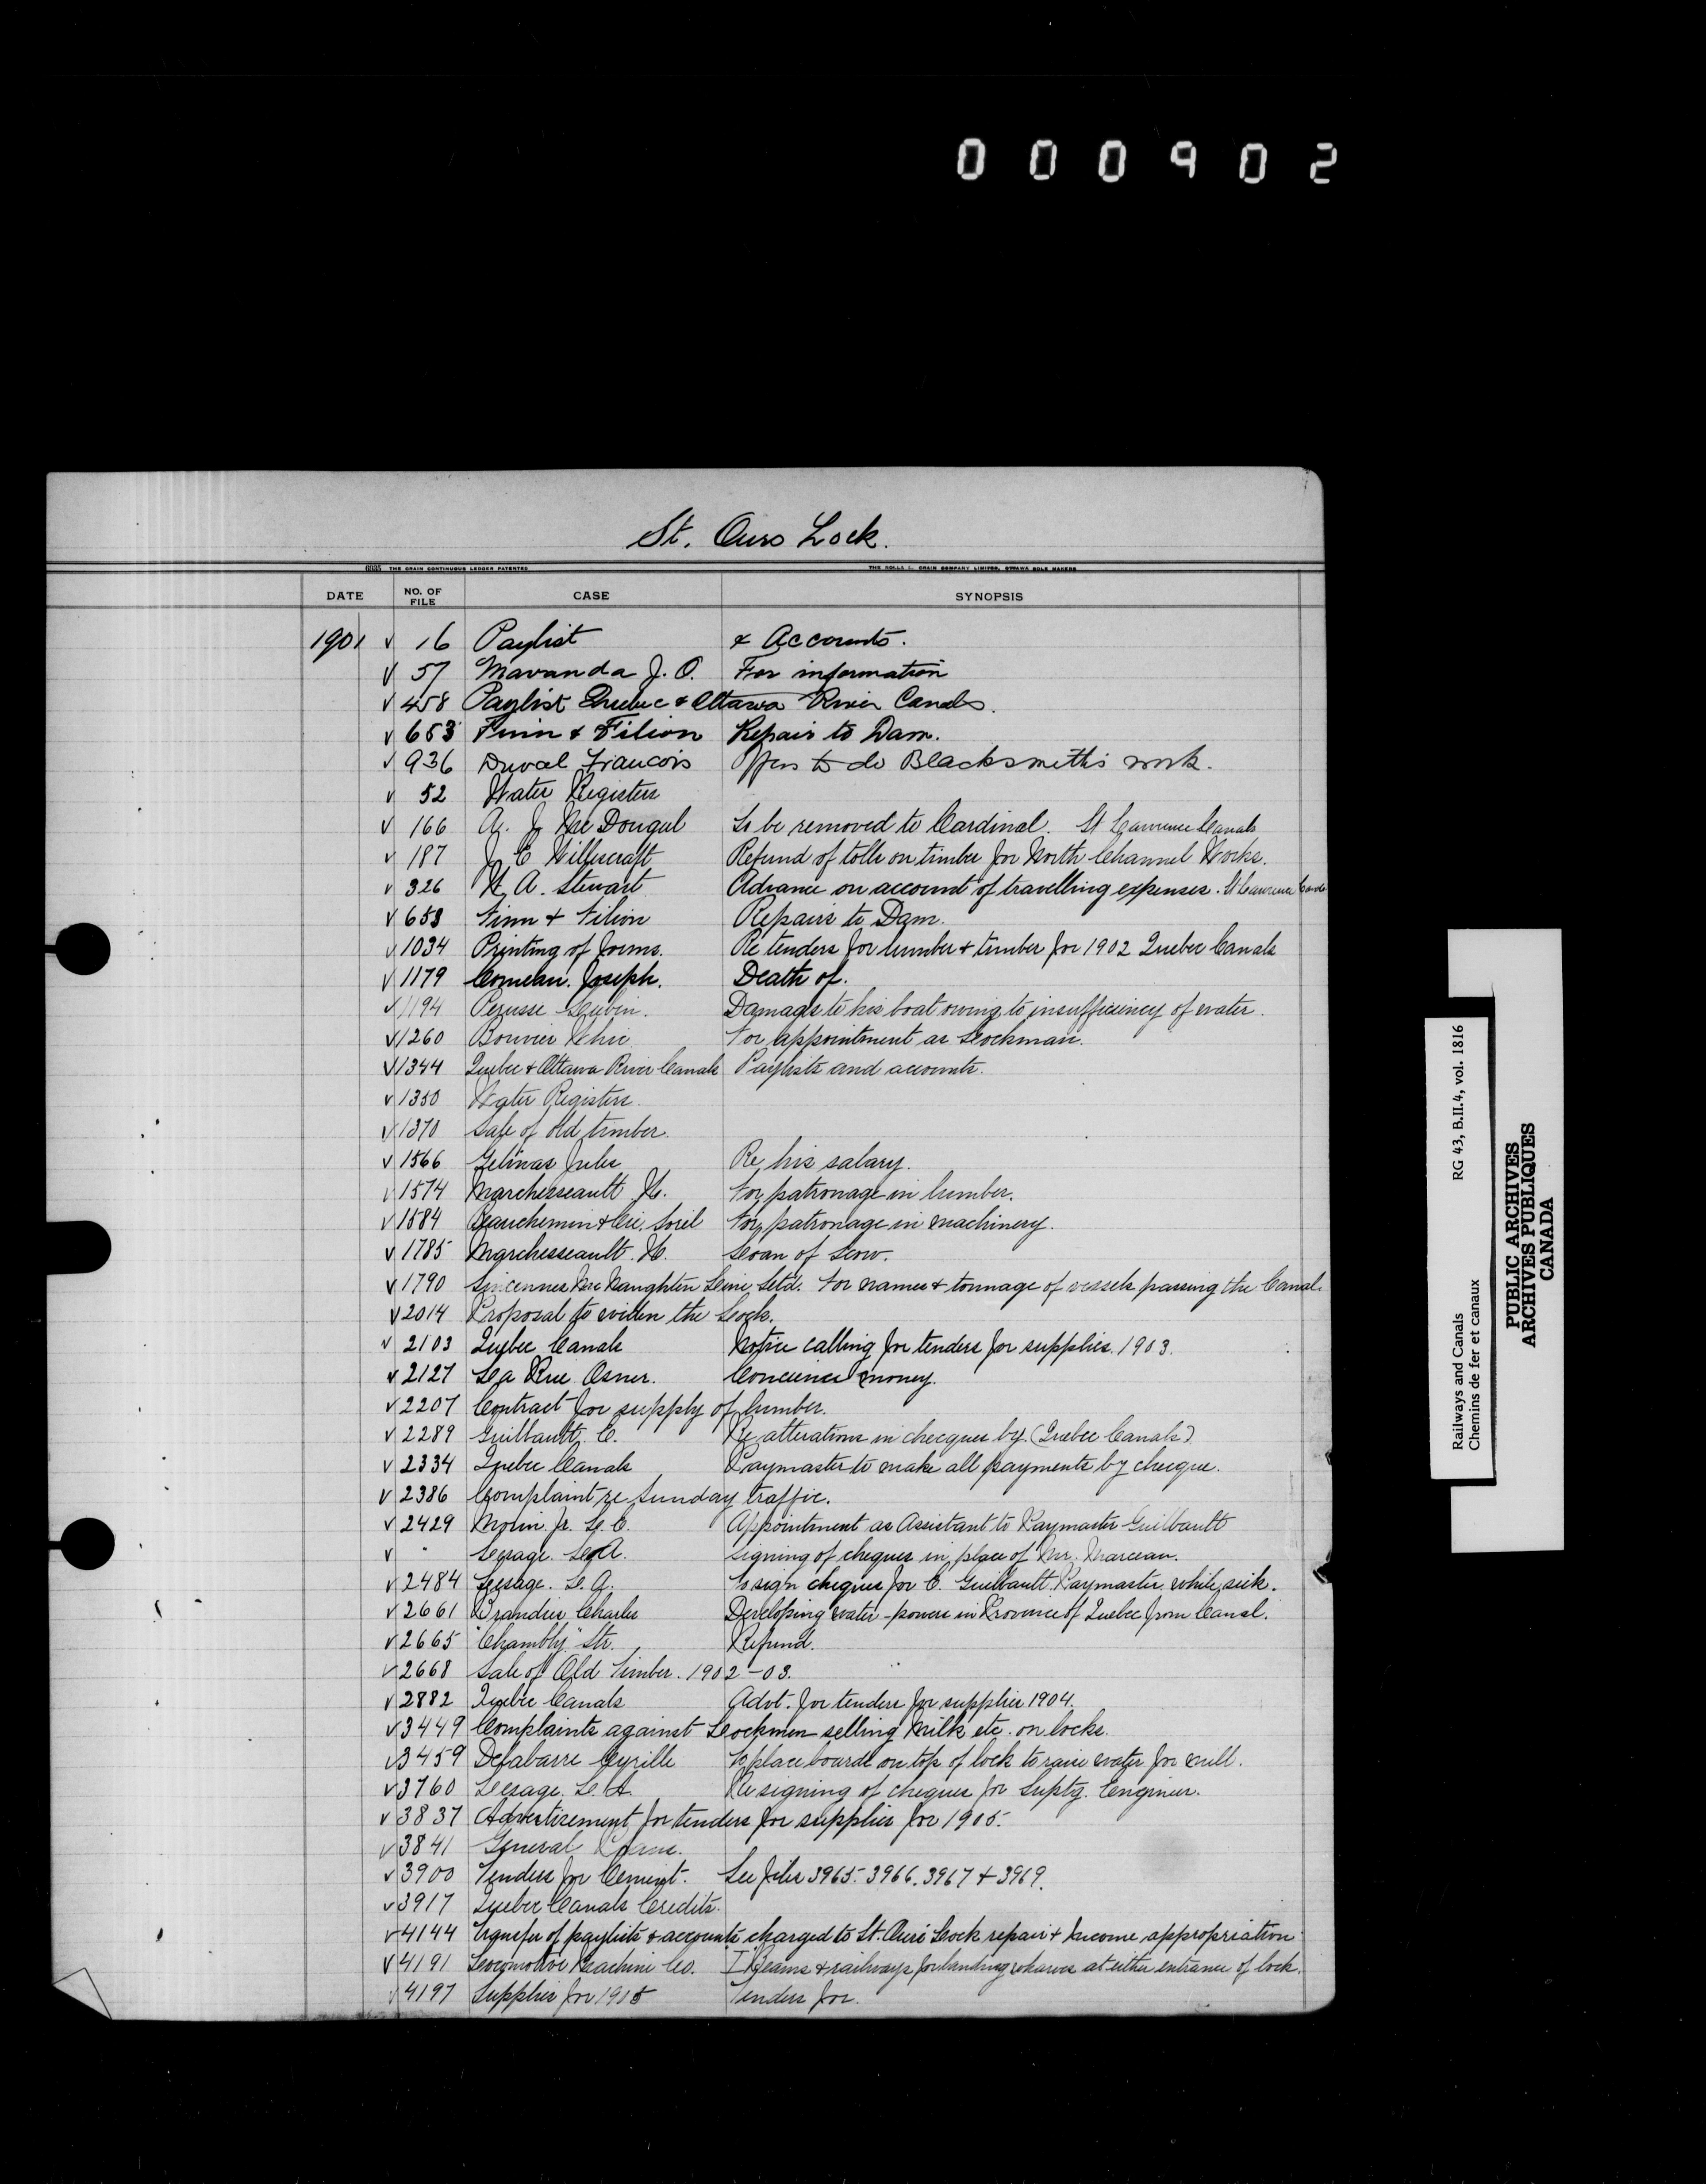 000902
St. Ours Lock.
6935 THE CRAIN CONTINUOUS LEDGER PATENTED THE ROLLA L. CRAIN COMPANY LIMITED, OTTAWA SOLE MAKERS
DATE NO. OF FILE CASE SYNOPSIS
1901 v 16 Paylist & Accounts.
v 57 Mavanda J. O. For information
v 458 Paylist Quebec & Ottawa River Canals.
v 653 Finn & Filion Repair to Dam.
v 936 Duval Francois Offers to do Blacksmith's work.
v 52 Water Registers
v 166 A. J. McDougal To be removed to Cardinal. St Lawrence Canals
v 187 J. C. Refund of tolls on timber for North Channel Works.
v 326 W. A. Stewart Advance on account of travelling expenses. St Lawrence Canals
v 653 Finn & Filion Repairs to Dam.
v 1034 Printing of forms. Re tenders for lumber & timber for 1902 Quebec Canals
v 1179 Comeau. Joseph. Death of.
v 1194 Perusse Damage to his boat owing to insufficiency of water.
v 1260 Bouvier For appointment as Lockman.
v 1344 Quebec & Ottawa River Canals Paylists and accounts.
v 1350 Water Registers.
v 1370 Sale of old timber.
v 1566 Gelinas Jules Re his salary.
v 1574 Marchesseault H. For patronage in lumber.
v 1584 Beauchemin & Cie. Sorel For patronage in machinery.
v 1785 Marchesseault. H. Loan of Scow.
v 1790 Sincennes McNaughton Line Ltd. For names & tonnage of vessels passing the Canal.
v 2014 Proposal to widen the Lock.
v 2103 Quebec Canals Notice calling for tenders for supplies. 1903.
v 2127 La Rue Osner. Concience money.
v 2207 Contract for supply of lumber.
v 2289 Guilbault. C. Re alterations in checques by (Quebec Canals)
v 2334 Quebec Canals Paymaster to make all payments by checque.
v 2386 Complaint re Sunday traffic.
v 2429 Morin Jr. L. C. Appointment as Assistant to Paymaster Guilbault
v " Lesage. L. A. Signing of cheques in place of Mr. Marceau.
v 2484 Lesage. L. A. To sign cheques for C. Guilbault Paymaster while sick.
v 2661 Brandies Charles Developing water-powers in Province of Quebec from Canal.
v 2665 "Chambly" Str. Refund.
v 2668 Sale of Old Timber. 1902-03.
v 2882 Quebec Canals Advt. for tenders for supplies 1904.
v 3449 Complaints against Lockmen selling Milk etc. on locks.
v 3459 Delabarre Cyrille To place boards on top of lock to raise water for mill.
v 3760 Lesage. L. A. Re signing of cheques for Suptg. Engineer.
v 3837 Advertisement for tenders for supplies for 1905.
v 3841 General
v 3900 Tenders for Cement. See files 3965. 3966. 3967 & 3969.
v 3917 Quebec Canals Credits.
v 4144 Transfer of paylists & accounts charged to St. Ours Lock repair & Income appropriation
v 4191 Locomotive Machine Co. I Beams & railways for landing wharves at either entrance of lock.
4197 Supplies for 1905 Tenders for.
Railways and Canals RG 43, B.II.4, vol. 1816
Chemins de fer et canaux
PUBLIC ARCHIVES
ARCHIVES PUBLIQUES
CANADA